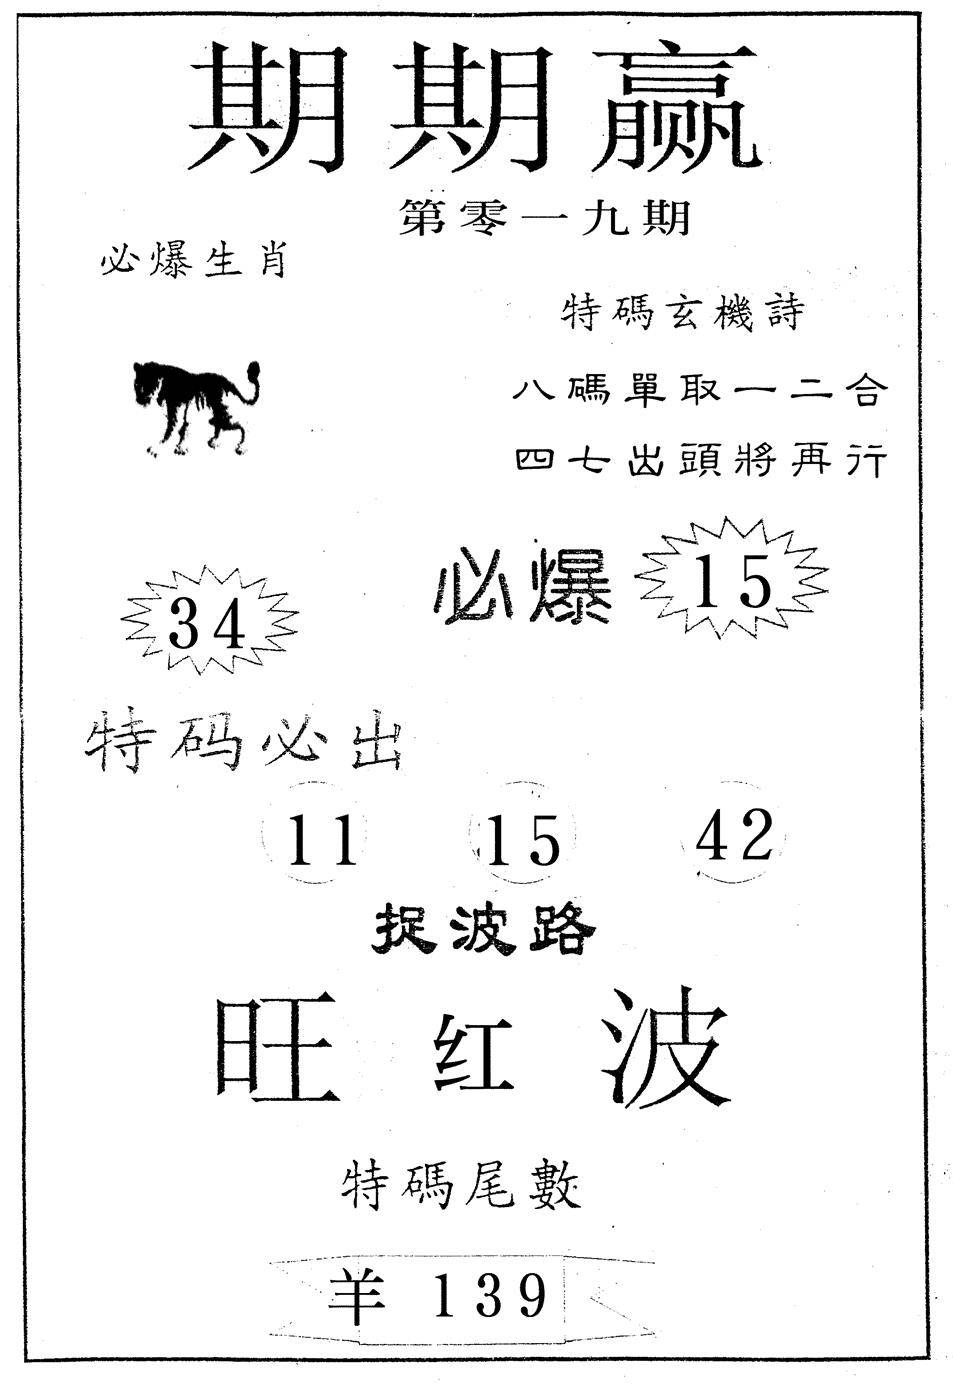 期期赢
第零一九期
必爆生肖
特碼玄機詩
八碼單取一二合
四七出頭將再行
必爆 15
34
特码必出
11 15 42
捉波路
旺红波
特碼尾數
羊 139